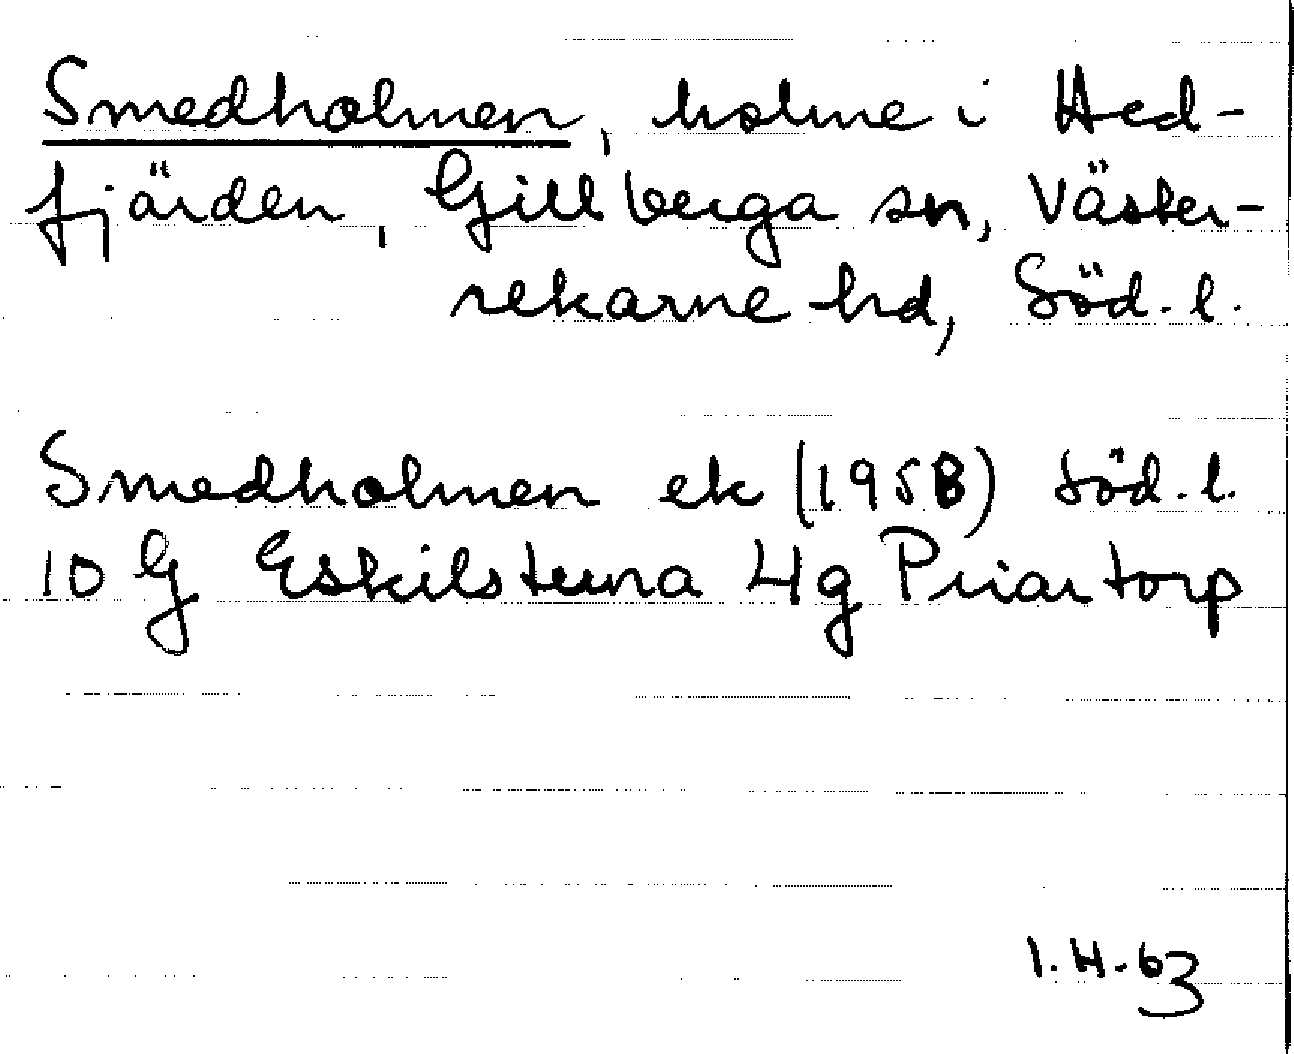 Smedholmen, holme i Hed-
fjärden, Gillberga sn, Väster-
rekarne hd, Söd. l.
Smedholmen ek (1958) Söd. l.
10 G Eskilstuna 4g Priartorp
1.H.63